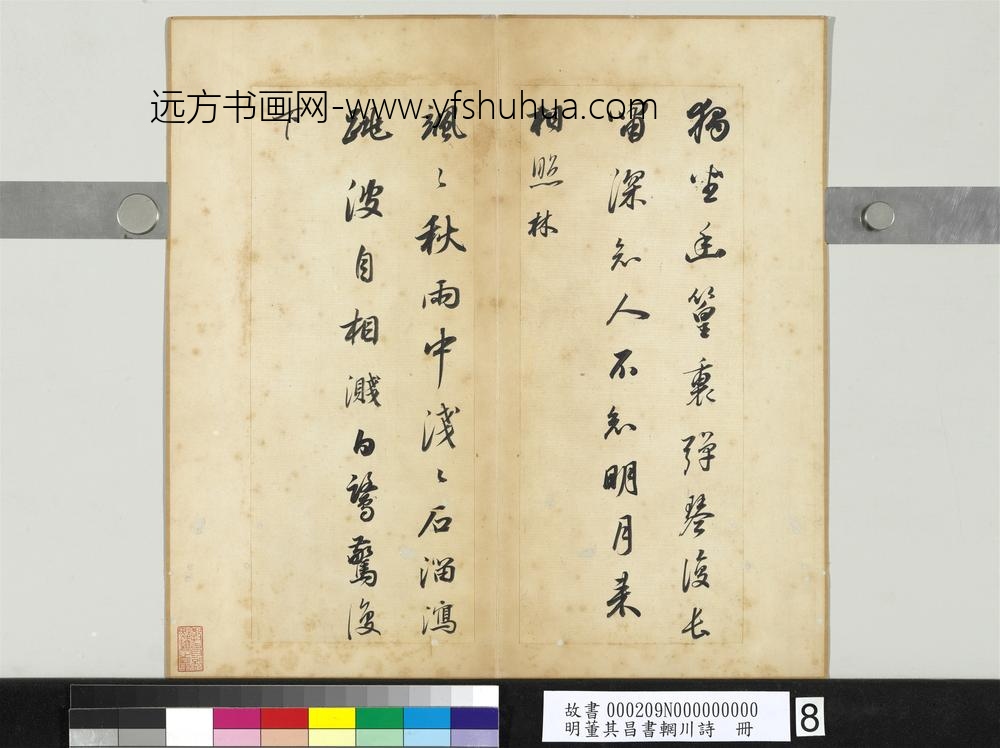 远方书画网-www.yfshuhua.com
獨坐幽篁裏彈琴復長
嘯深知人不知明月来
相照林
颯〻秋雨中淺〻石溜瀉
跳波自相濺白鷺驚復
下
故書 000209N000000000
明董其昌書輞川詩 冊
8